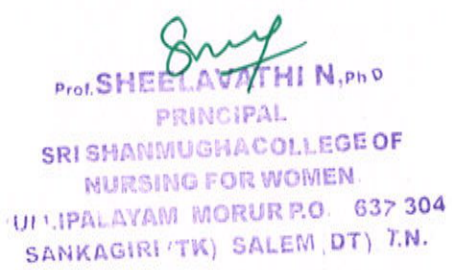 Prof. SHEELAVATHI N, Ph D
PRINCIPAL
SRI SHANMUGHA COLLEGE OF
NURSING FOR WOMEN.
MORUR P.O. 637 304
SANKAGIRI (TK) SALEM DT) T.N.